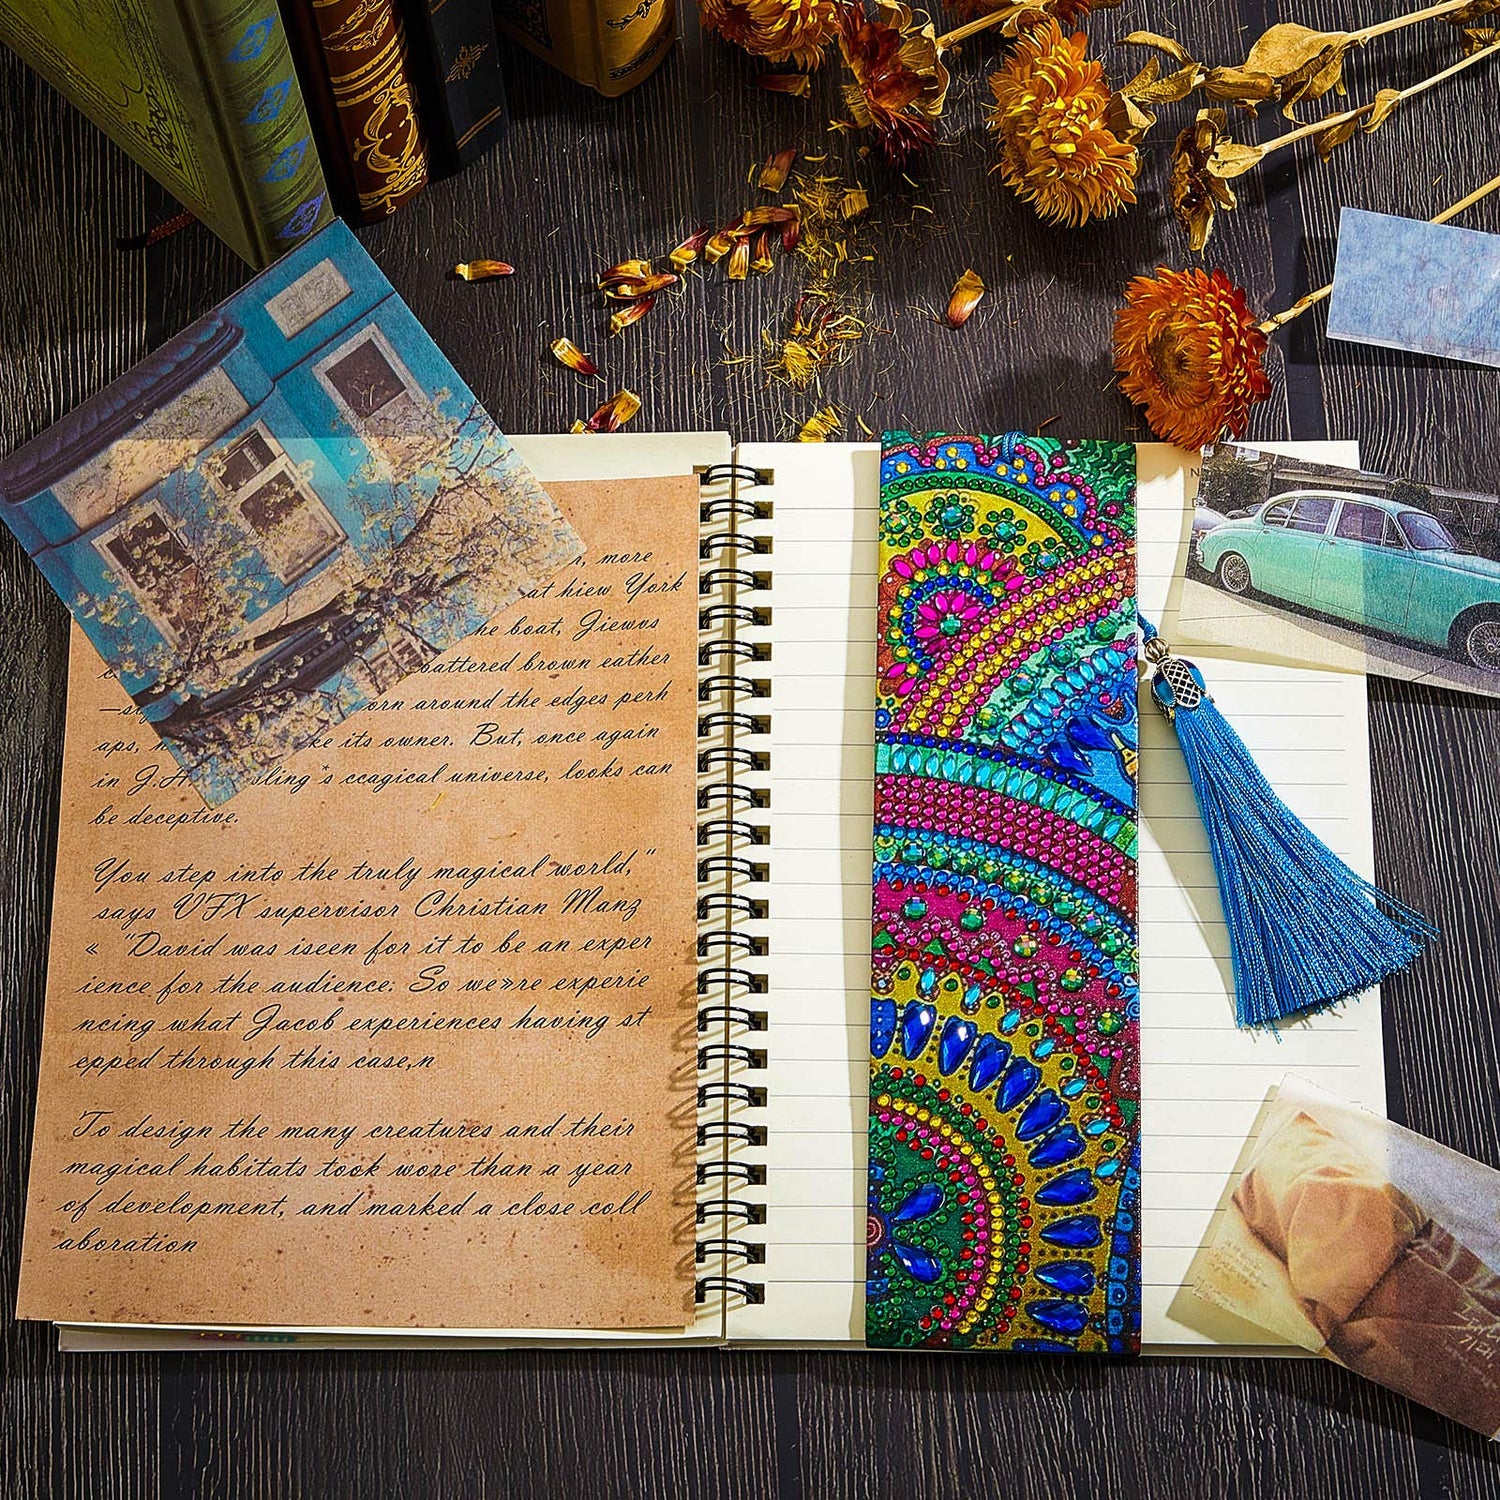 r, more
at hiew York
he boat, Jiewvs
battered brown eather
orn around the edges perh
aps, ke its owner. But, once again
in J.A sling's ccagical universe, looks can
be deceptive.
You step into the truly magical world,"
says VFX supervisor Christian Manz
« "David was iseen for it to be an exper
ience for the audience: So we»re experie
ncing what Jacob experiences having st
epped through this case,n
To design the many creatures and their
magical habitats took wore than a year
of development, and marked a close coll
aboration